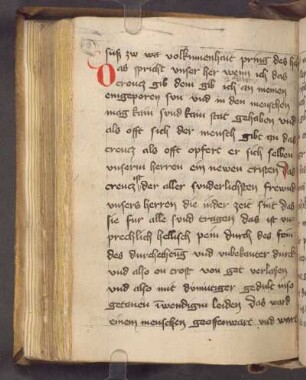 suß zw wa volkumenhait pring des her
Das spricht unser her wenn ich das
creucz gib dem gib ich an meinen
eingeporen sun und in den menschen
mag kain sund kain stat gehaben und
als offt sich der mensch gibt an das
creucz als offt opfert er sich selben
unserm herren ein newen cristen Das
creucz ist der aller sunderlichsten frewnd
unsers herren die in der zeit sint das
sie fur alle sund tragen das ist un
sprechlich hellisch pein durch des
des durch und unbekanter durch
und also on trost von got verlassen
und also mit dymutiger gedult
getauen inwendigm leiden Das ward
einem menschen geoffenwart und wart